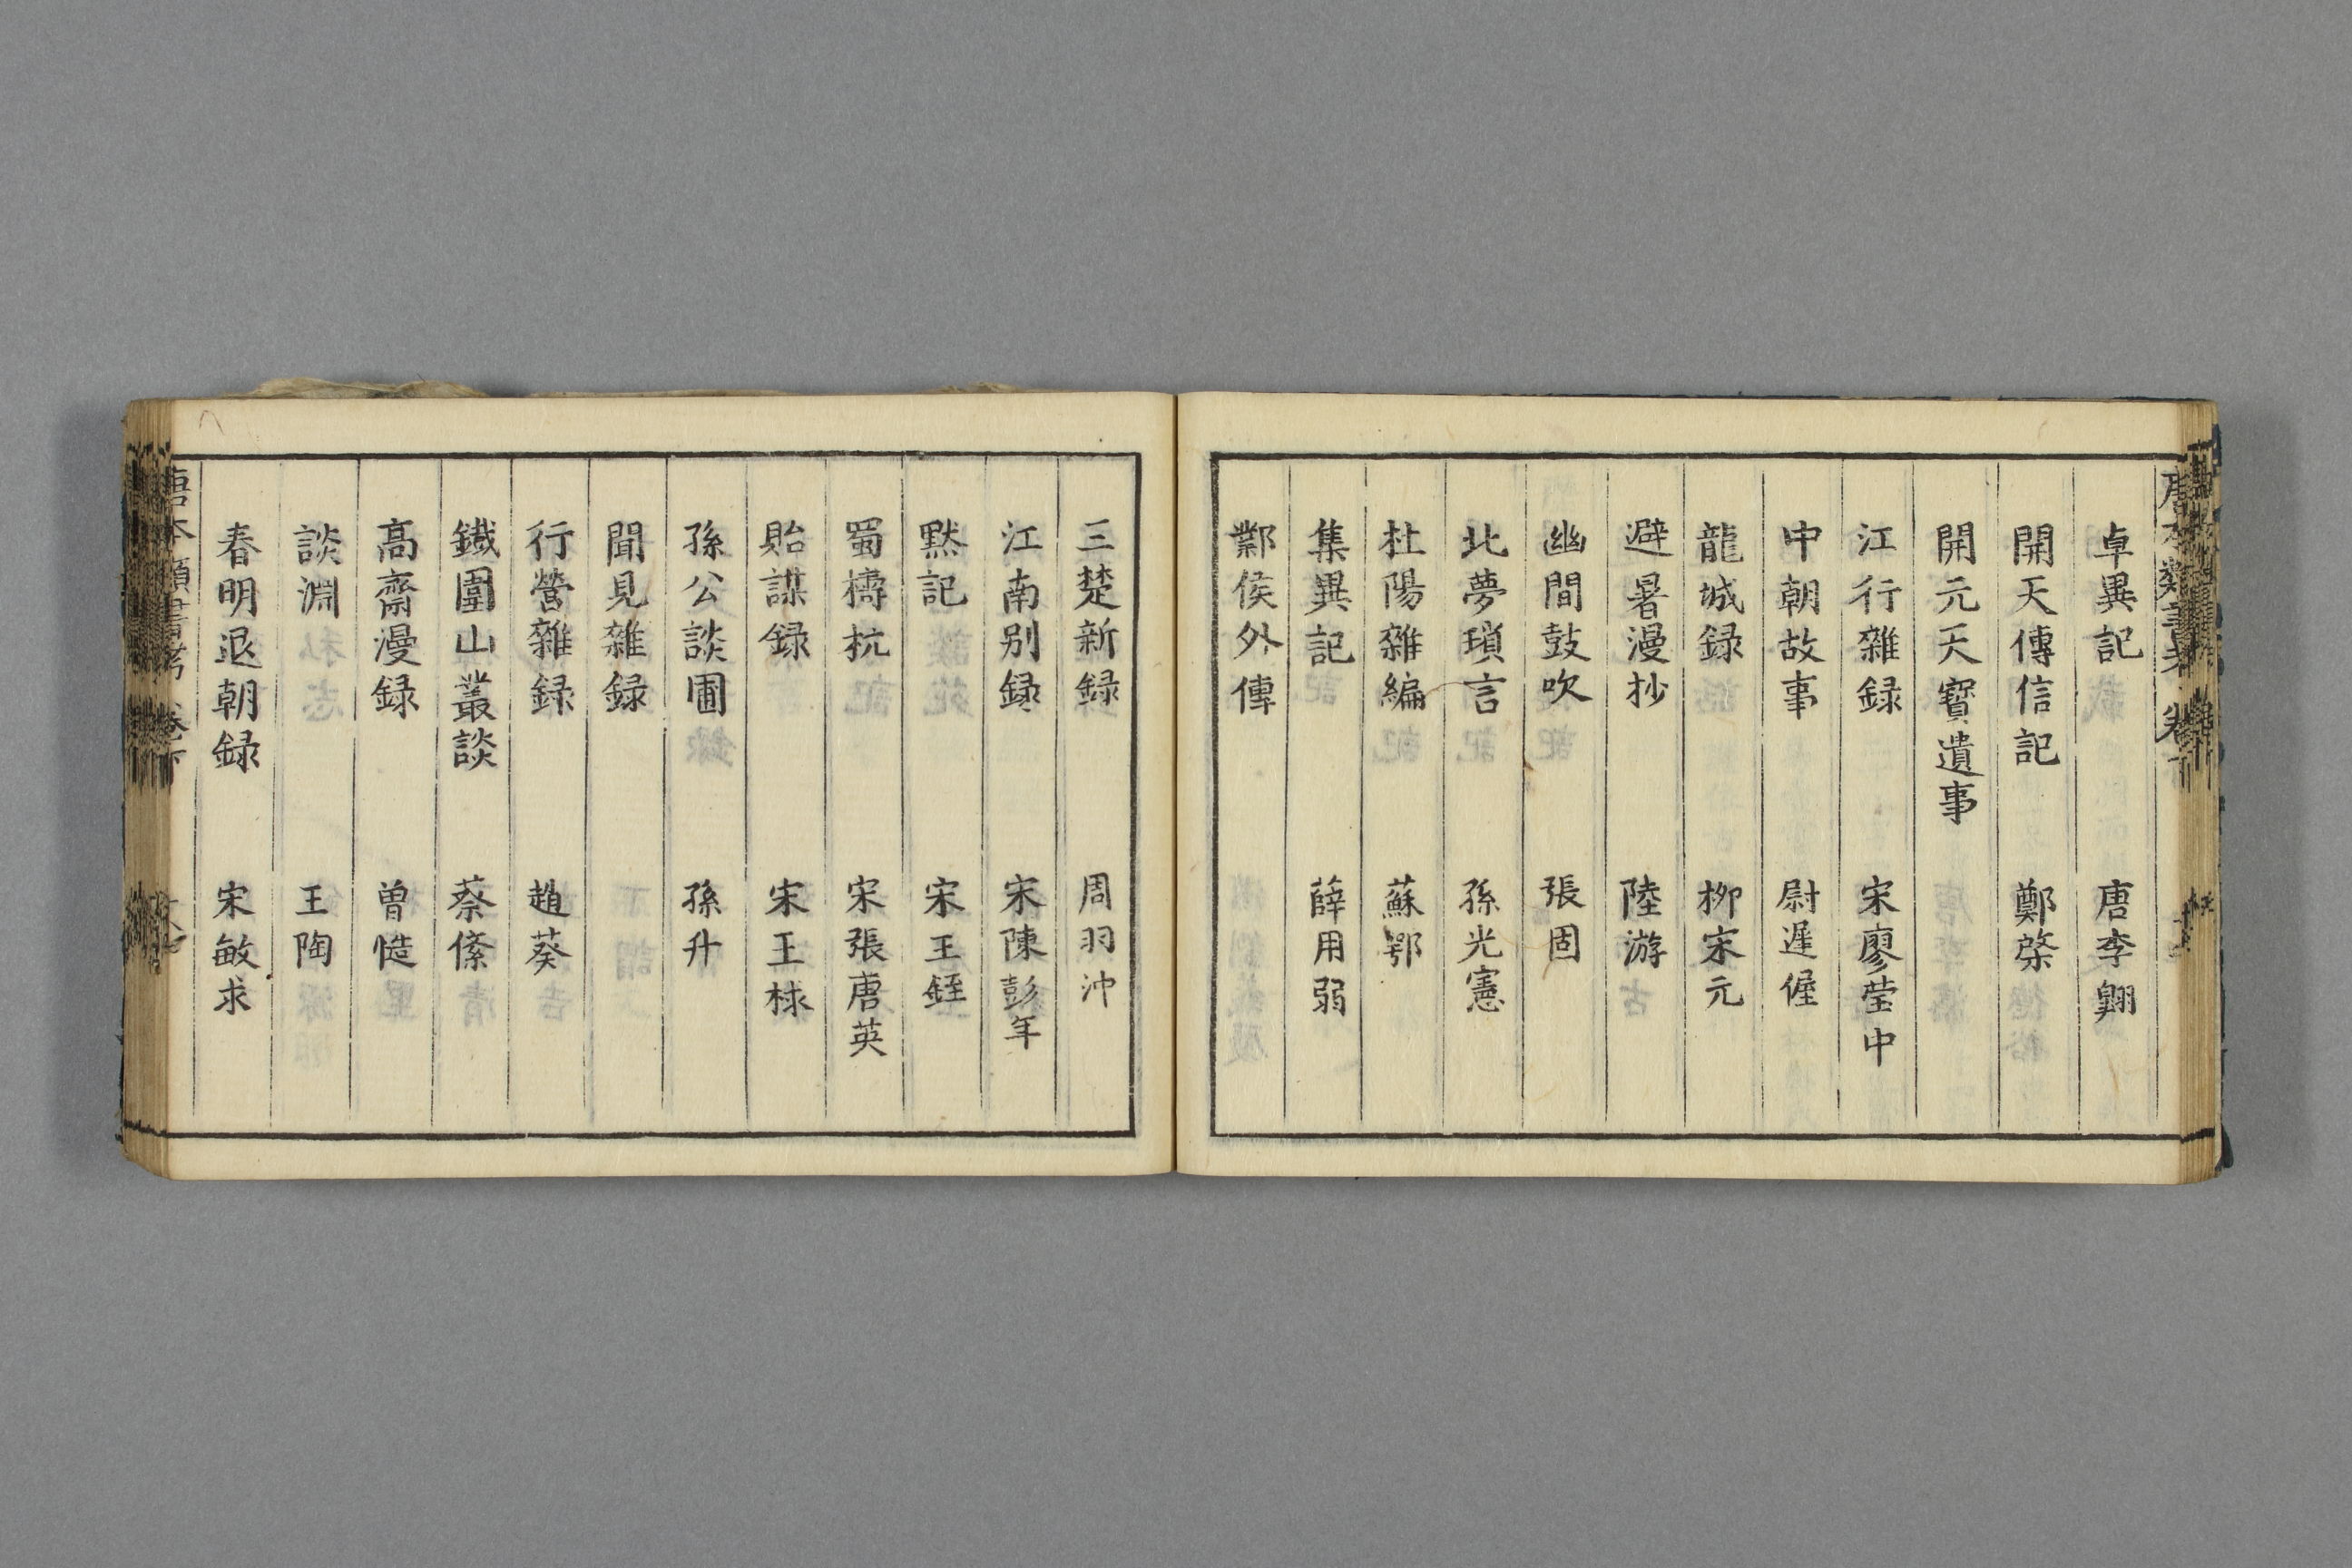 卓異記　唐李翺
開天傳信記　鄭棨
開元天寶遺事
江行雜録　宋廖瑩中
中朝故事　尉遲偓
龍城録　柳宗元
避暑漫抄　陸游
幽間鼓吹　張固
北夢瑣言　孫光憲
杜陽雜編　蘇鄂
集異記　薛用弱
鄴侯外傳
三楚新録　周羽沖
江南别録　宋陳彭年
默記　宋王銍
蜀檮杌　宋張唐英
貽謀録　宋王梂
孫公談圃　孫升
聞見雜録
行營雜録　趙葵
鐵圍山叢談　蔡絛
高齋漫録　曾慥
談淵　王陶
春明退朝録　宋敏求
唐本類書考　卷下